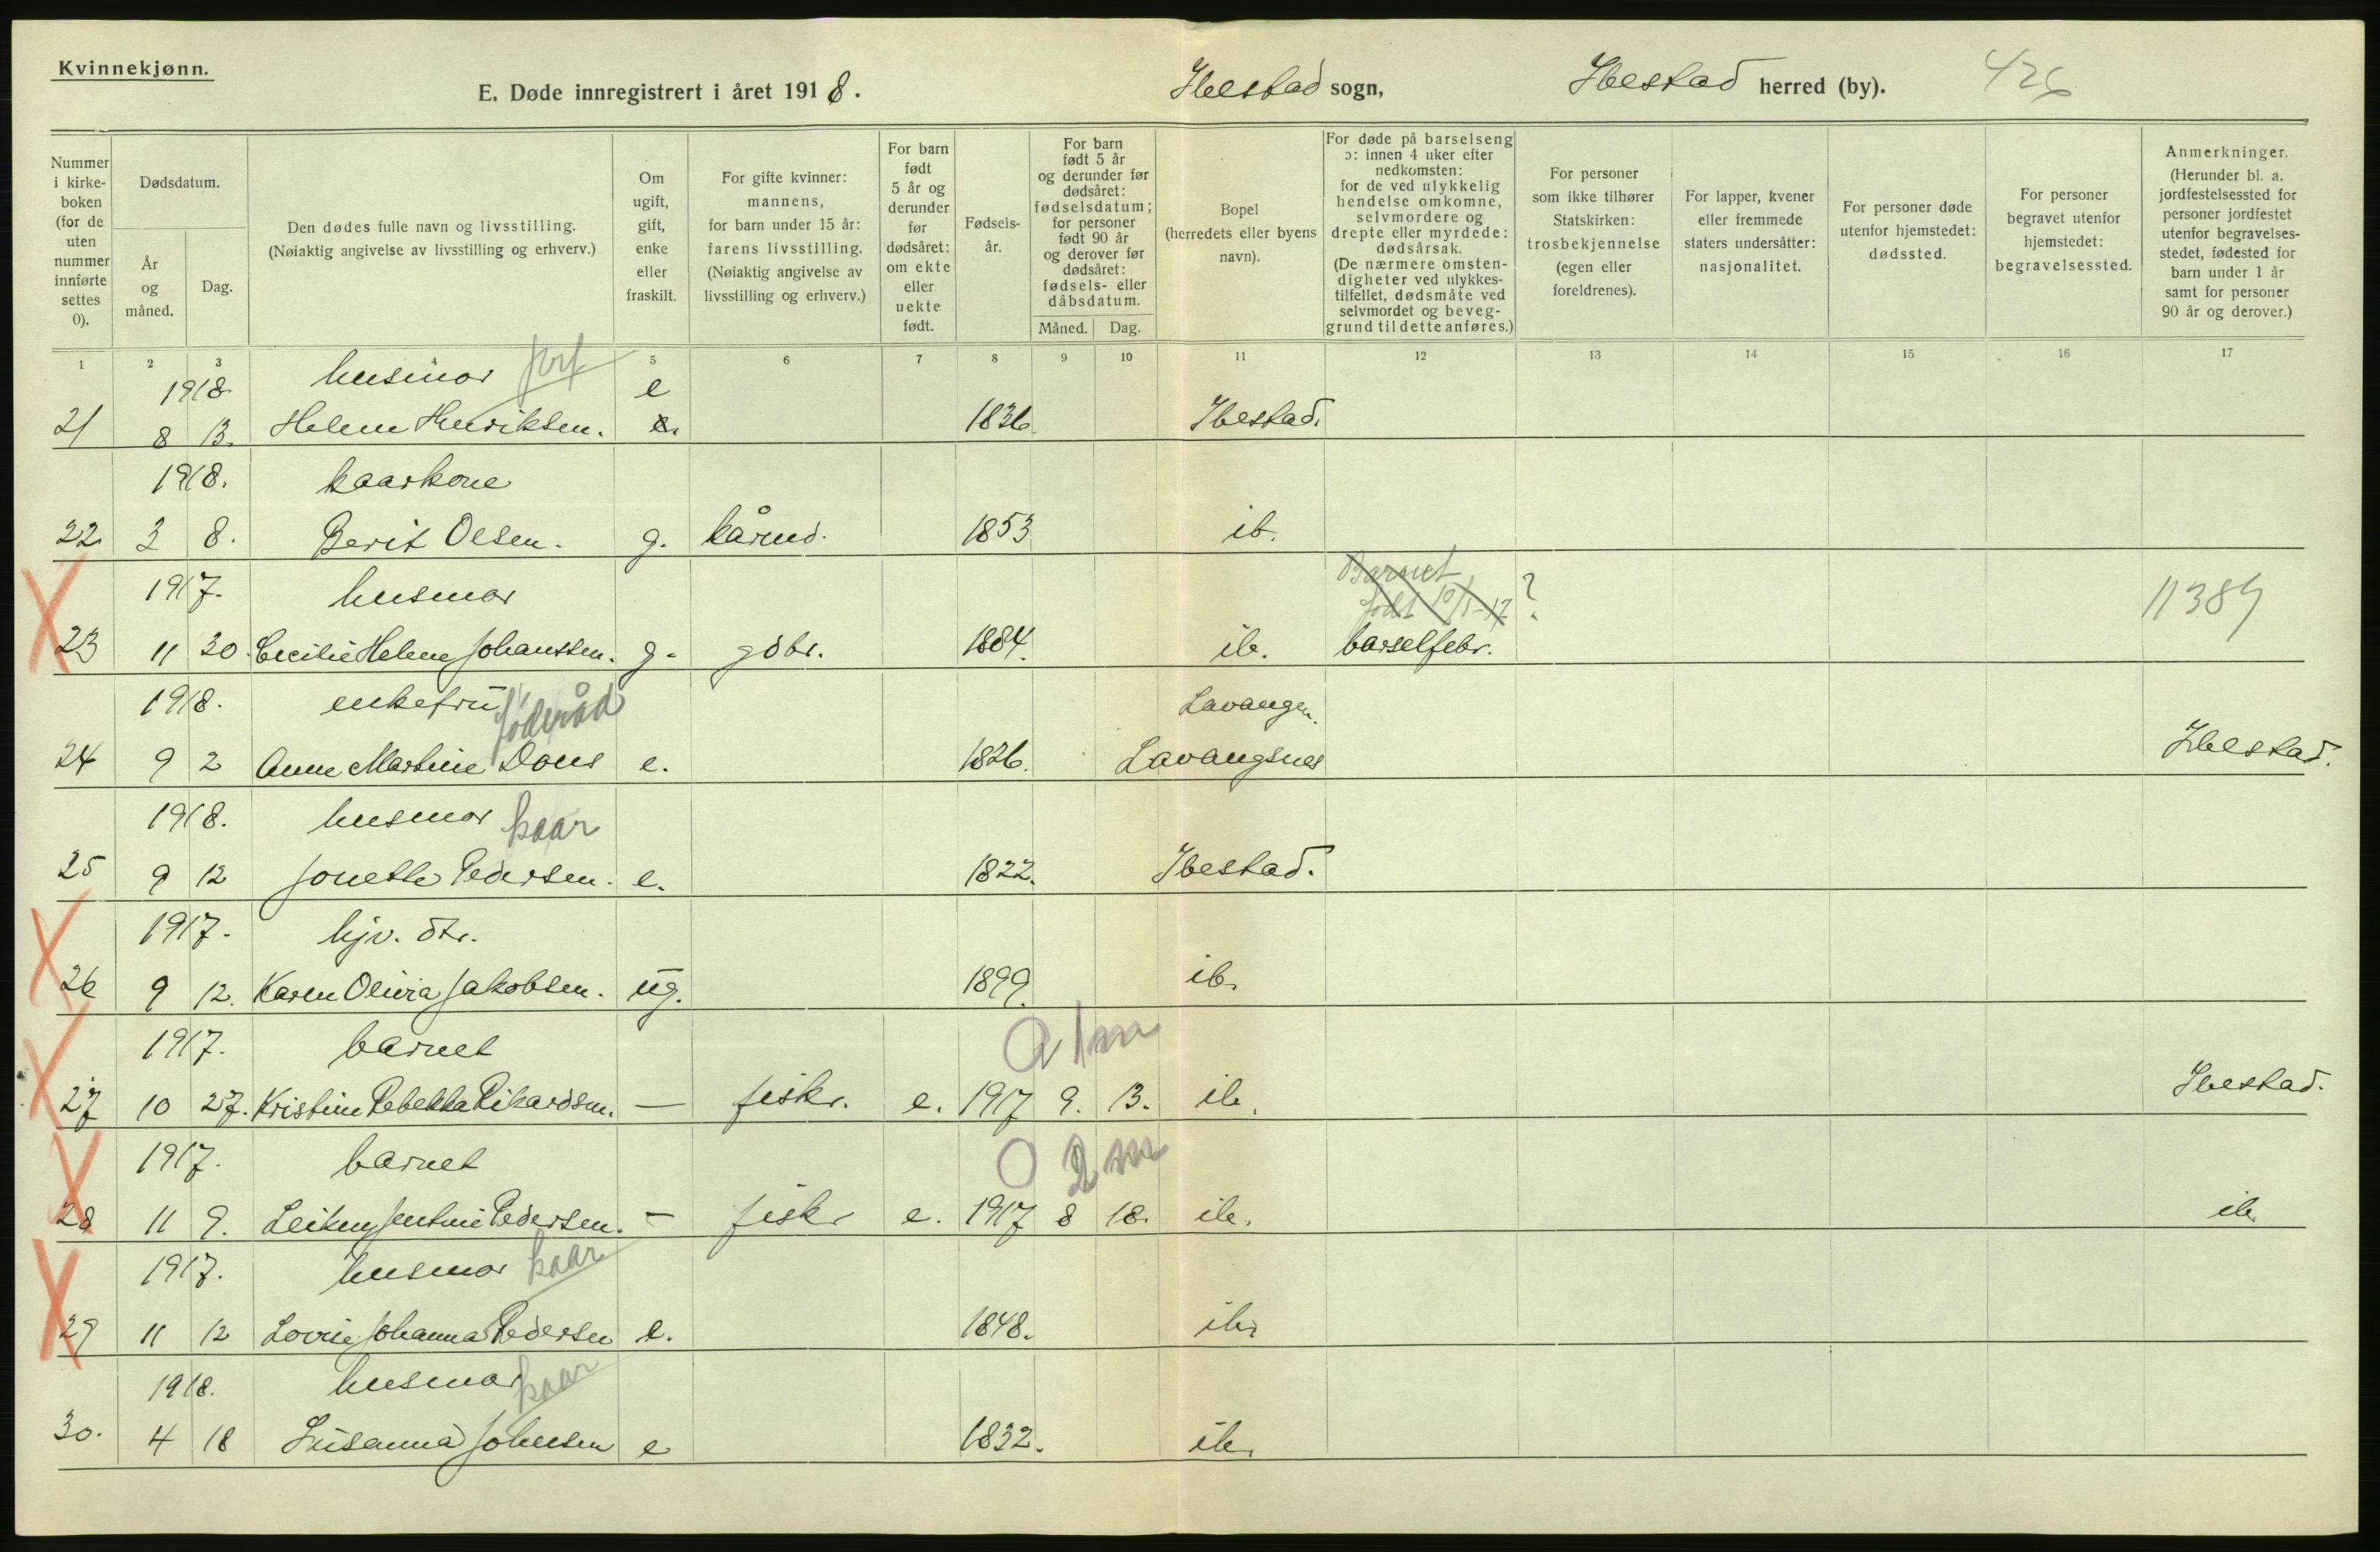 Kvinnekjønn.
E. Døde innregistrert i året 1918. Ibestad sogn, Ibestad herred (by). 426
Nummer i kirkeboken (for de uten nummer innførte settes 0).
Dødsdatum.
År og måned.
Dag.
Den dødes fulle navn og livsstilling.
(Nøiaktig angivelse av livsstilling og erhverv.)
Om ugift, gift, enke eller fraskilt.
For gifte kvinner: mannens, for barn under 15 år: farens livsstilling.
(Nøiaktig angivelse av livsstilling og erhverv.)
For barn født 5 år og derunder før dødsåret: om ekte eller uekte født.
Fødsels-år.
For barn født 5 år og derunder før dødsåret: fødselsdatum; for personer født 90 år og derover før dødsåret: fødsels- eller dåbsdatum.
Måned. Dag.
Bopel (herredets eller byens navn).
For døde på barselseng ɔ: innen 4 uker efter nedkomsten: for de ved ulykkelig hendelse omkomne, selvmordere og drepte eller myrdede: dødsårsak.
(De nærmere omsten-digheter ved ulykkes-tilfellet, dødsmåte ved selvmordet og beveg-grund til dette anføres.)
For personer som ikke tilhører Statskirken: trosbekjennelse (egen eller foreldrenes).
For lapper, kvener eller fremmede staters undersåtter: nasjonalitet.
For personer døde utenfor hjemstedet: dødssted.
For personer begravet utenfor hjemstedet: begravelsessted.
Anmerkninger.
(Herunder bl. a. jordfestelsessted for personer jordfestet utenfor begravelses-stedet, fødested for barn under 1 år samt for personer 90 år og derover.)
1 2 3 5 6 7 8 9 10 11 12 13 14 15 16 17
1918. husmor e
21 8 13. Helene Henriksen. e. 1836 Ibestad.
1918. kaarkone
22 3 8. Berit Olsen. g. kårmd. 1853 ib.
1917. husmor Barnet født 10/5-17 ? 11389
23 11 30. Cecilie Helene Johanssen. g. gdbr. 1884. ib. barselfebr.
1918. enkefru föderåd Lavangen.
24 9 2 Anne Martine Dons e. 1826. Lavangsnes Ibestad.
1918. husmor kaar
25 9 12 Jonette Pedersen. e. 1822. Ibestad.
1917. hjv. dtr.
26 9 12. Karen Olivia Jakobsen. ug. 1899. ib.
1917. barnet 0 1 m
27 10 27. Kristine Rebekka Rikardsen. — fiskr. e. 1917 9. 13. ib. Ibestad.
1917. barnet 0 2 m
28 11 9. Leikny Jentine Pedersen. — fiskr e. 1917 8 18. ib. ib.
1917. husmor kaar
29 11 12 Lovise Johanna Pedersen e. 1848. ib.
1918. husmor kaar
30. 4 18 Susanna Johnsen e 1832. ib.